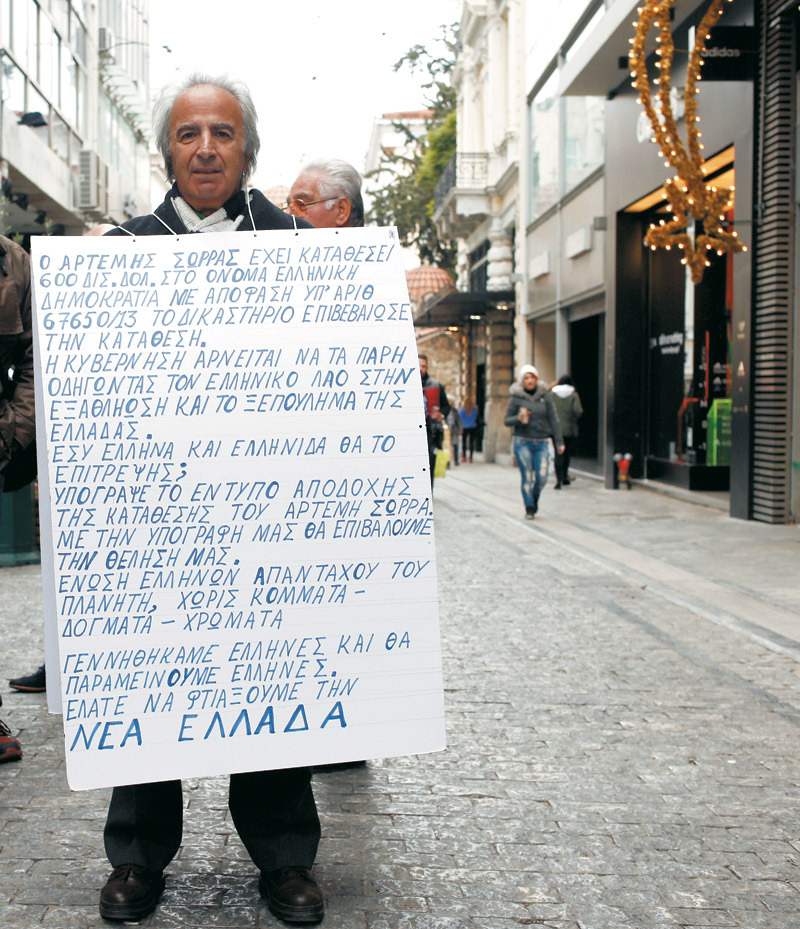 Ο ΑΡΤΕΜΗΣ ΣΩΡΡΑΣ ΕΧΕΙ ΚΑΤΑΘΕΣΕΙ
600 ΔΙΣ. ΔΟΛ. ΣΤΟ ΟΝΟΜΑ ΕΛΛΗΝΙΚΗ
ΔΗΜΟΚΡΑΤΙΑ ΜΕ ΑΠΟΦΑΣΗ ΥΠ' ΑΡΙΘ
67650/13 ΤΟ ΔΙΚΑΣΤΗΡΙΟ ΕΠΙΒΕΒΑΙΩΣΕ
ΤΗΝ ΚΑΤΑΘΕΣΗ.
Η ΚΥΒΕΡΝΗΣΗ ΑΡΝΕΙΤΑΙ ΝΑ ΤΑ ΠΑΡΗ
ΟΔΗΓΩΝΤΑΣ ΤΟΝ ΕΛΛΗΝΙΚΟ ΛΑΟ ΣΤΗΝ
ΕΞΑΘΛΗΩΣΗ ΚΑΙ ΤΟ ΞΕΠΟΥΛΗΜΑ ΤΗΣ
ΕΛΛΑΔΑΣ.
ΕΣΥ ΕΛΛΗΝΑ ΚΑΙ ΕΛΛΗΝΙΔΑ ΘΑ ΤΟ
ΕΠΙΤΡΕΨΗΣ;
ΥΠΟΓΡΑΨΕ ΤΟ ΕΝΤΥΠΟ ΑΠΟΔΟΧΗΣ
ΤΗΣ ΚΑΤΑΘΕΣΗΣ ΤΟΥ ΑΡΤΕΜΗ ΣΩΡΡΑ.
ΜΕ ΤΗΝ ΥΠΟΓΡΑΦΗ ΜΑΣ ΘΑ ΕΠΙΒΑΛΟΥΜΕ
ΤΗΝ ΘΕΛΗΣΗ ΜΑΣ.
ΕΝΩΣΗ ΕΛΛΗΝΩΝ ΑΠΑΝΤΑΧΟΥ ΤΟΥ
ΠΛΑΝΗΤΗ, ΧΩΡΙΣ ΚΟΜΜΑΤΑ –
ΔΟΓΜΑΤΑ – ΧΡΩΜΑΤΑ
ΓΕΝΝΗΘΗΚΑΜΕ ΕΛΛΗΝΕΣ ΚΑΙ ΘΑ
ΠΑΡΑΜΕΙΝΟΥΜΕ ΕΛΛΗΝΕΣ.
ΕΛΑΤΕ ΝΑ ΦΤΙΑΞΟΥΜΕ ΤΗΝ
ΝΕΑ ΕΛΛΑΔΑ
adidas